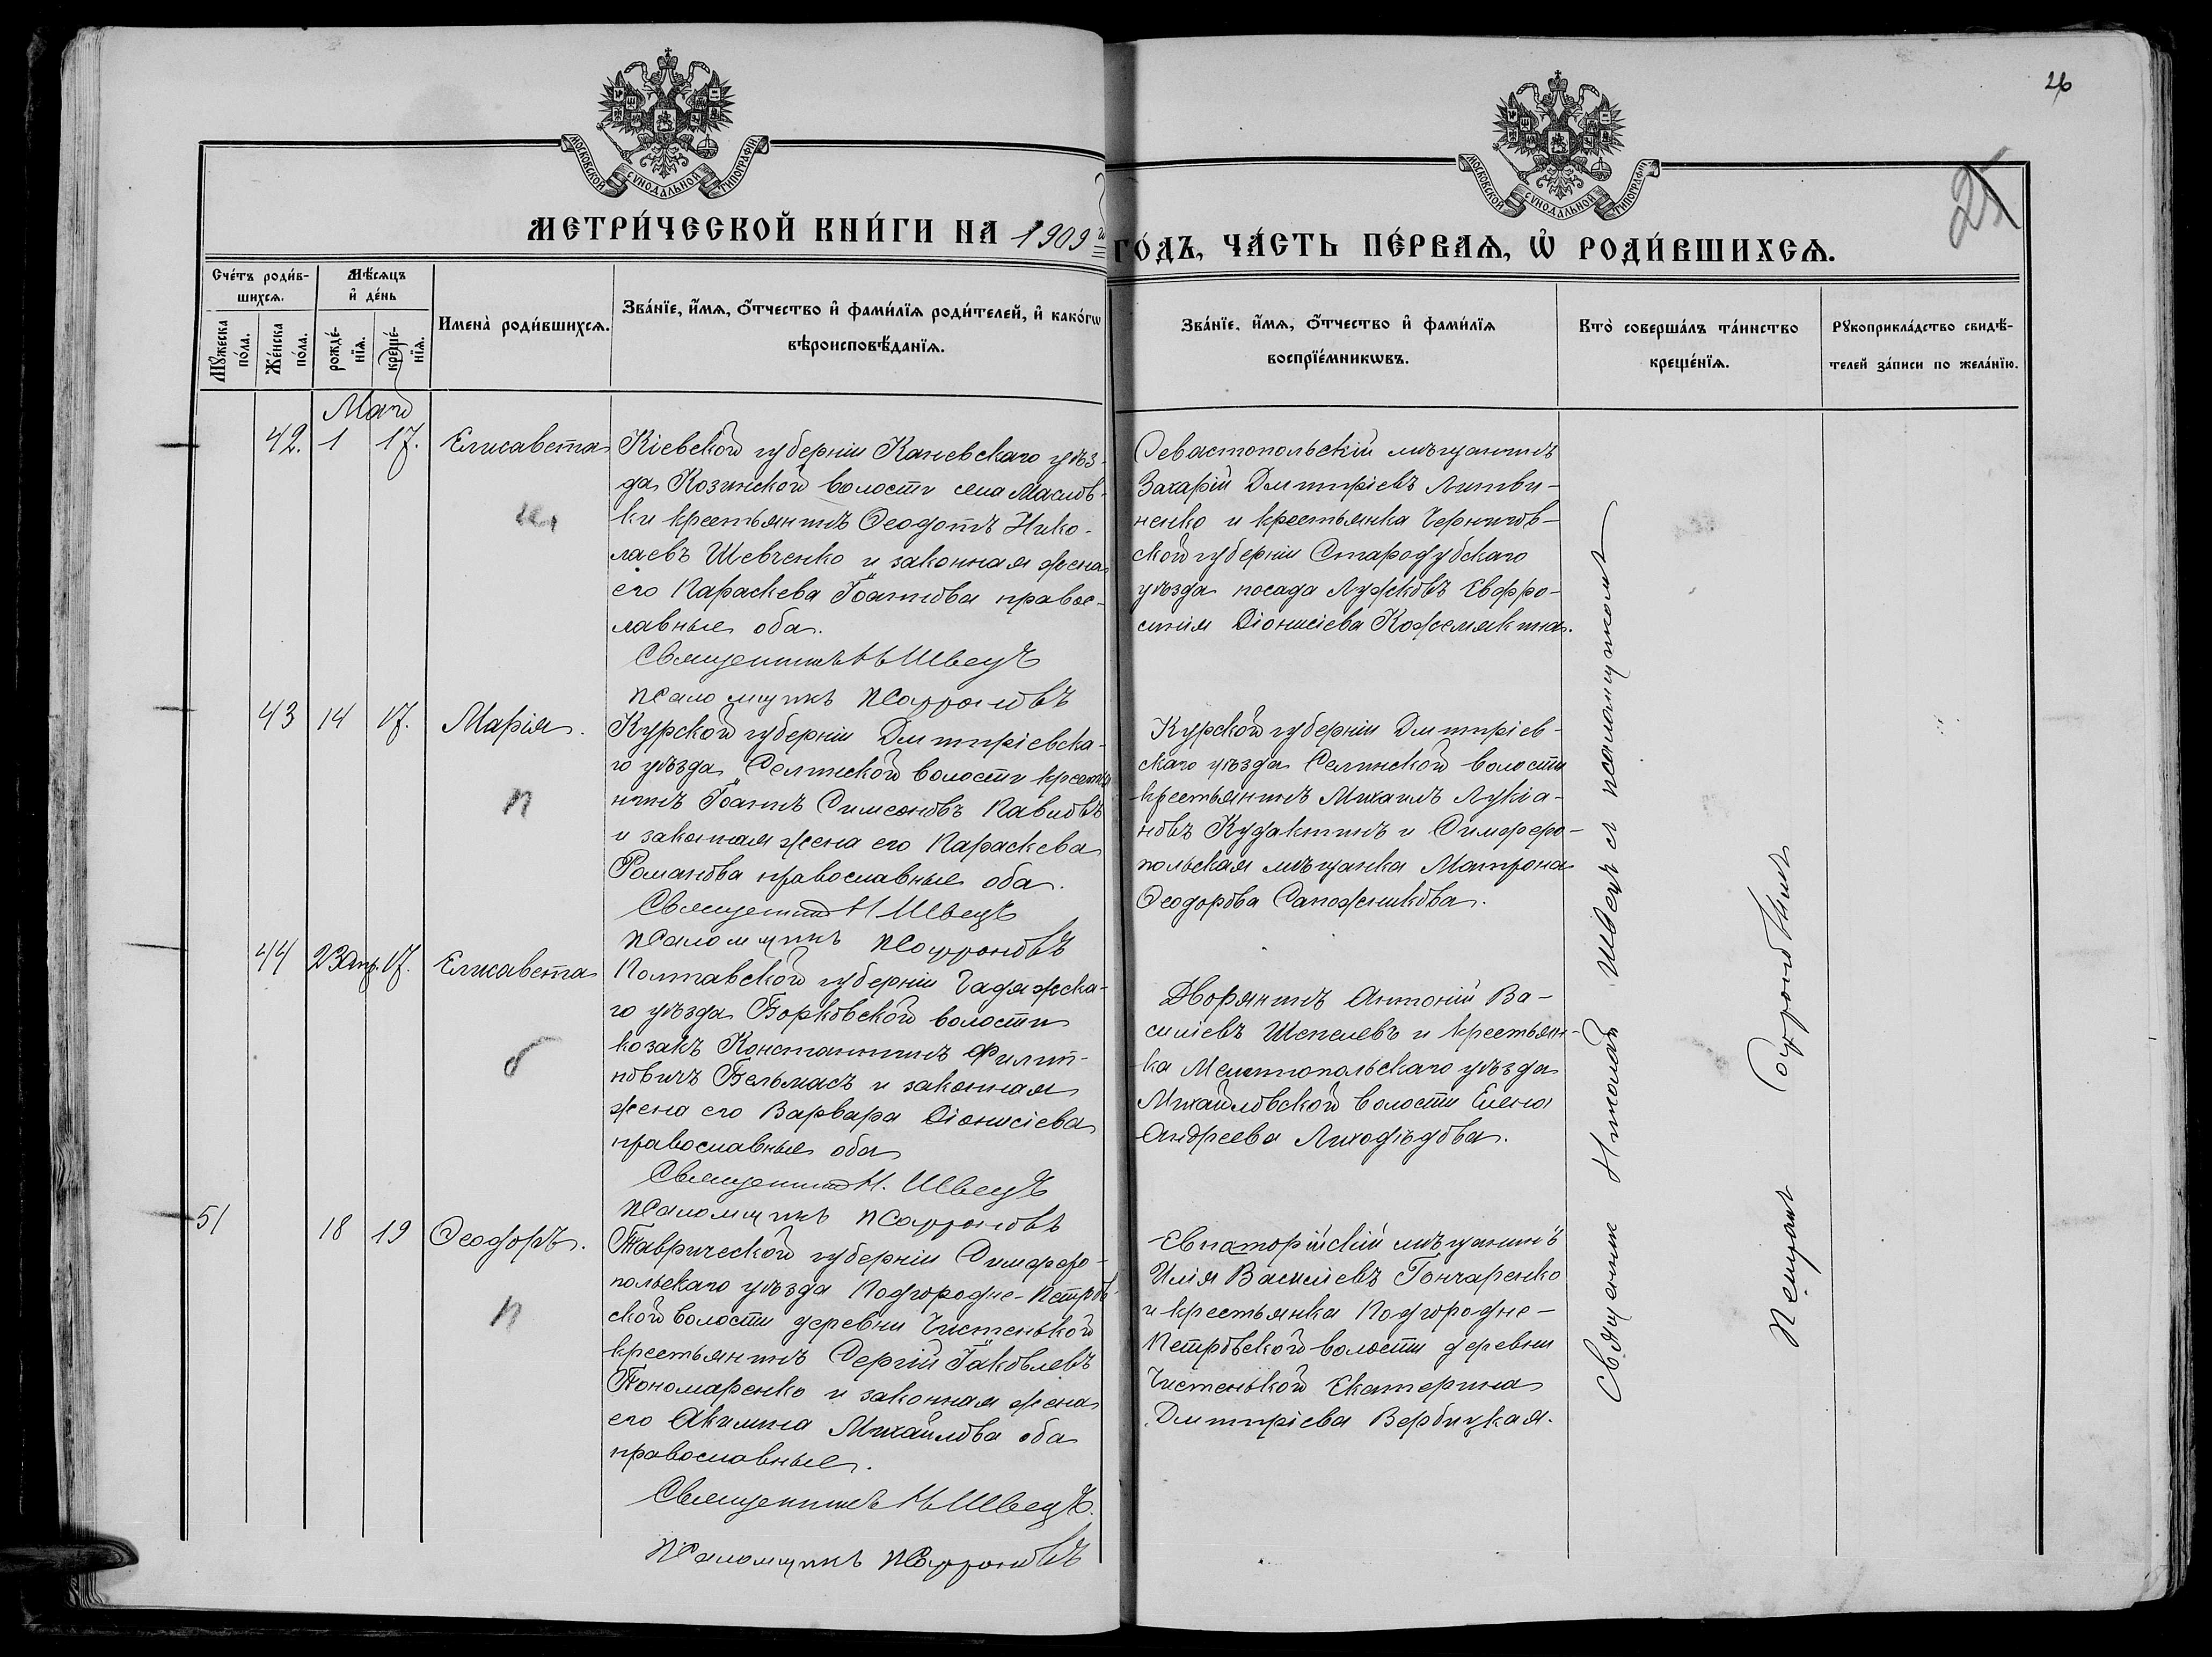 26
25
МОСКОВСКОЙ СѴНОДАЛЬНОЙ ТИПОГРАФІИ
МОСКОВСКОЙ СѴНОДАЛЬНОЙ ТИПОГРАФІИ
МЕТРИ́ЧЕСКОЙ КНИ́ГИ НА 1909 й
ГО́ДЪ, ЧА́СТЬ ПЕ́РВАѦ, Ѡ҆ РОДИ́ВШИХСѦ.
Сче́тъ роди́в-
шихсѧ.
Мꙋ́жеска по́ла.
Же́нска по́ла.
Мѣ́сѧцъ
и҆ де́нь
рожде́-
нїѧ.
креще́-
нїѧ.
Имена̀ роди́вшихсѧ.
Зва́нїе, и҆́мѧ, ѻ҆́тчество и҆ фами́лїѧ роди́телей, и҆ како́гѡ
вѣроисповѣ́данїѧ.
Зва́нїе, и҆́мѧ, ѻ҆́тчество и҆ фами́лїѧ
воспрїе́мникѡвъ.
Кто̀ соверша́лъ та́инство
креще́нїѧ.
Рꙋкоприкла́дство свидѣ́-
телей за́писи по жела́нїю.
Май
42. 1 17. Елисавета
Кіевской губерніи Каневскаго уѣз-
да Козинской волости села Маслов-
ки крестьянинъ Ѳеодотъ Нико-
лаевъ Шевченко и законная жена
его Параскева Іоаннова правос-
лавные оба.
Священникъ Н Швецъ
Псаломщикъ П Сафроновъ
Севастопольскій мѣщанинъ
Захарій Димитріевъ Литви-
ненко и крестьянка Чернигов-
ской губерніи Стародубскаго
уѣзда посада Лужковъ Евфро-
синія Діонисіева Кожемякина.
43 14 17. Марія.
п
Курской губерніи Димитріевска-
го уѣзда Селинской волости крестья
нинъ Іоаннъ Симеоновъ Павловъ
и законная жена его Параскева
Романова православные оба.
Священникъ Н Швецъ
Псаломщикъ П Сафроновъ
Курской губерніи Димитріев-
скаго уѣзда Селинской волости
крестьянинъ Михаилъ Лукіа-
новъ Кудакинъ и Симферо-
польская мѣщанка Матрона
Ѳеодорова Сапожникова.
44 23 Апр. 17. Елисавета
б
Полтавской губерніи Гадяжска-
го уѣзда Борковской волости
козакъ Константинъ Филип-
повичъ Бельмасъ и законная
жена его Варвара Діонисіева
православные оба
Священникъ Н. Швецъ
Псаломщикъ П Сафроновъ
Дворянинъ Антоній Ва-
силіевъ Шепелевъ и крестьян-
ка Мелитопольскаго уѣзда
Михайловской волости Елена
Андреева Лиходѣдова.
51 18 19 Ѳеодоръ.
п
Таврической губерніи Симферо-
польскаго уѣзда Подгородне-Петров-
ской волости деревни Чистенькой
крестьянинъ Сергій Іаковлевъ
Пономаренко и законная жена
его Акилина Михайлова оба
православные.
Священникъ Н Швецъ.
Псаломщикъ П Сафроновъ
Евпаторійскій мѣщанинъ
Илія Василіевъ Гончаренко
и крестьянка Подгородне-
Петровской волости деревни
Чистенькой Екатерина
Димитріева Вербицкая.
Священник Николай Швец с псаломщиком